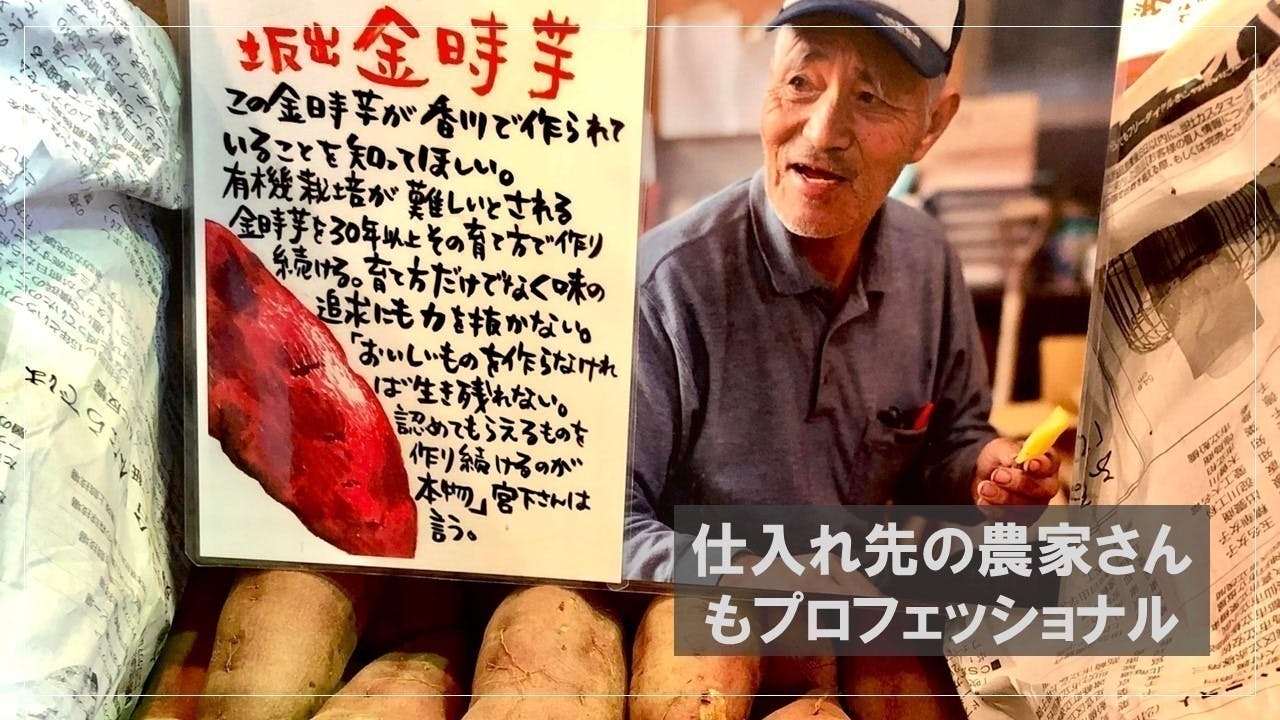 坂出金時芋
この金時芋が香川で作られて
いることを知ってほしい。
有機栽培が難しいとされる
金時芋を30年以上その育て方で作り
続ける。育て方だけでなく味の
追求にも力を抜かない。
「おいしいものを作らなけれ
ば生き残れない。
認めてもらえるものを
作り続けるのが
本物」宮下さんは
言う。
仕入れ先の農家さん
もプロフェッショナル